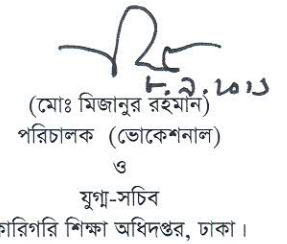 ৮.৯.২০১১
(মোঃ মিজানুর রহমান)
পরিচালক (ভোকেশনাল)
ও
যুগ্ম-সচিব
কারিগরি শিক্ষা অধিদপ্তর, ঢাকা।